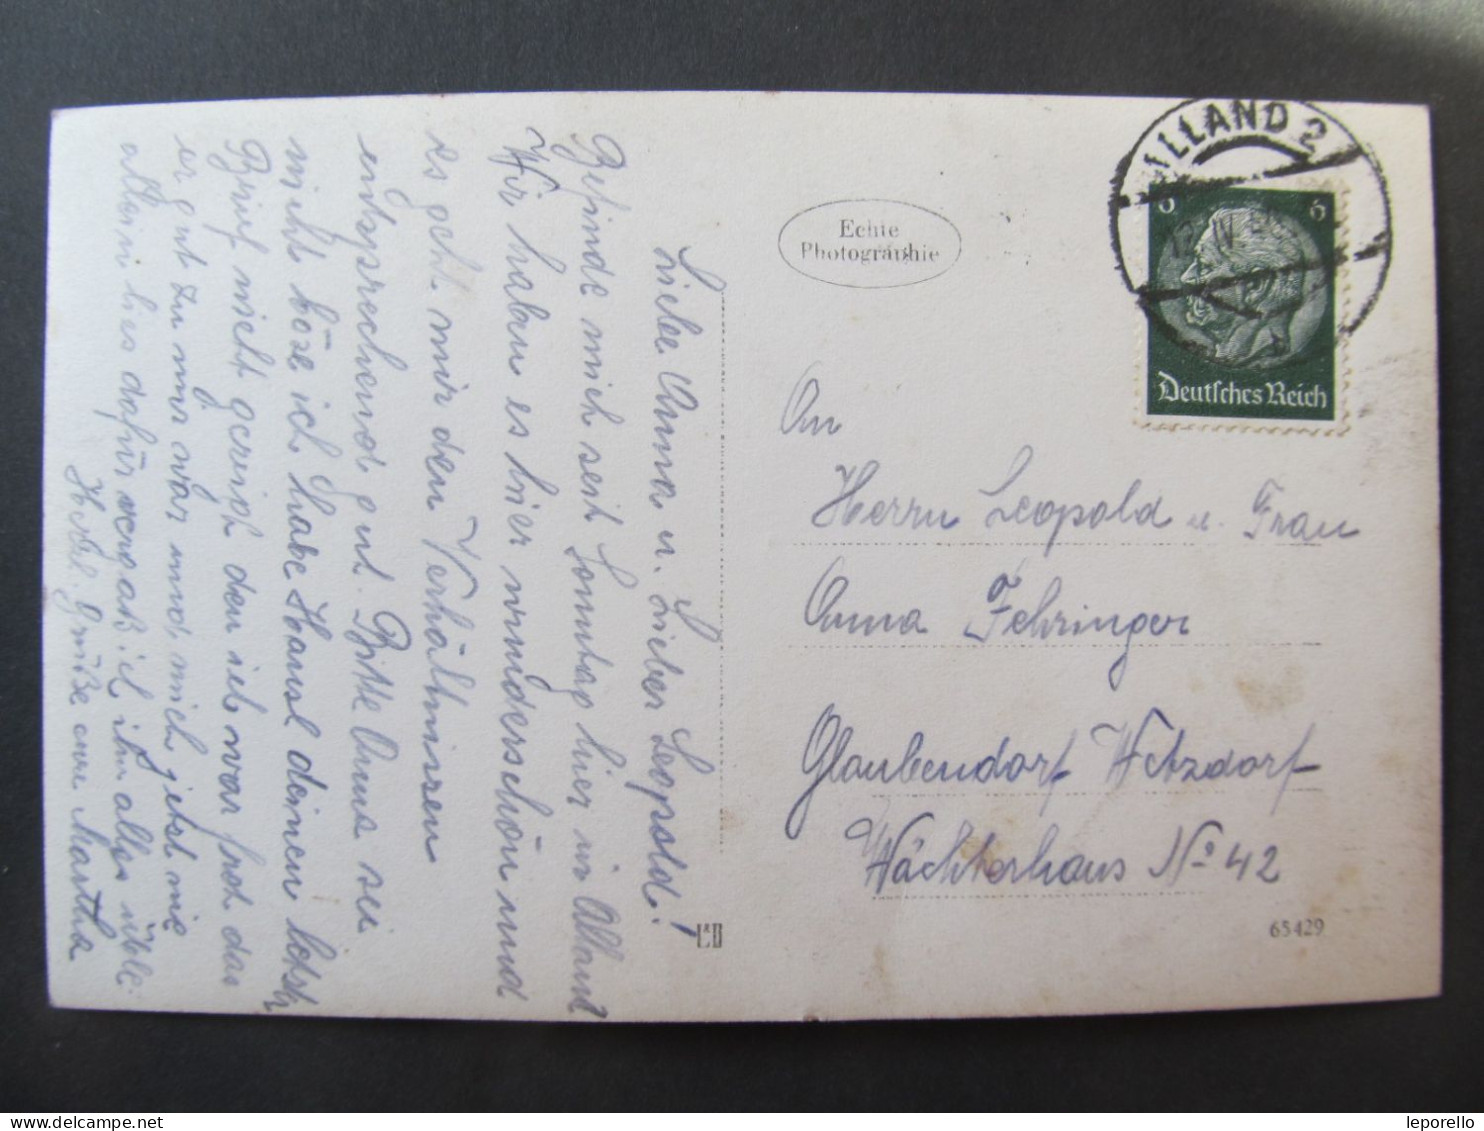 Liebe Anna u. Lieber Leopold!
Befinde mich seit Sonntag hier in Alland
Wir haben es hier wunderschön und
es geht mir den Verhältnissen
entsprechend gut. Bitte Anna sei
nicht böse ich habe Hansl deinen letzten
Brief nicht gezeigt den ich war froh das
er gut zu mir war und mich jetzt nie
allein lies dafür vergaß ich ihm alles üble.
Herzl. Grüße eure Martha
Echte
Photographie
ALLAND 2
12. IV
6 6
Deutsches Reich
An
Herrn Leopold u. Frau
Anna Fehringer
Glaubendorf Wetzdorf
Wächterhaus No 42
65429
leporello